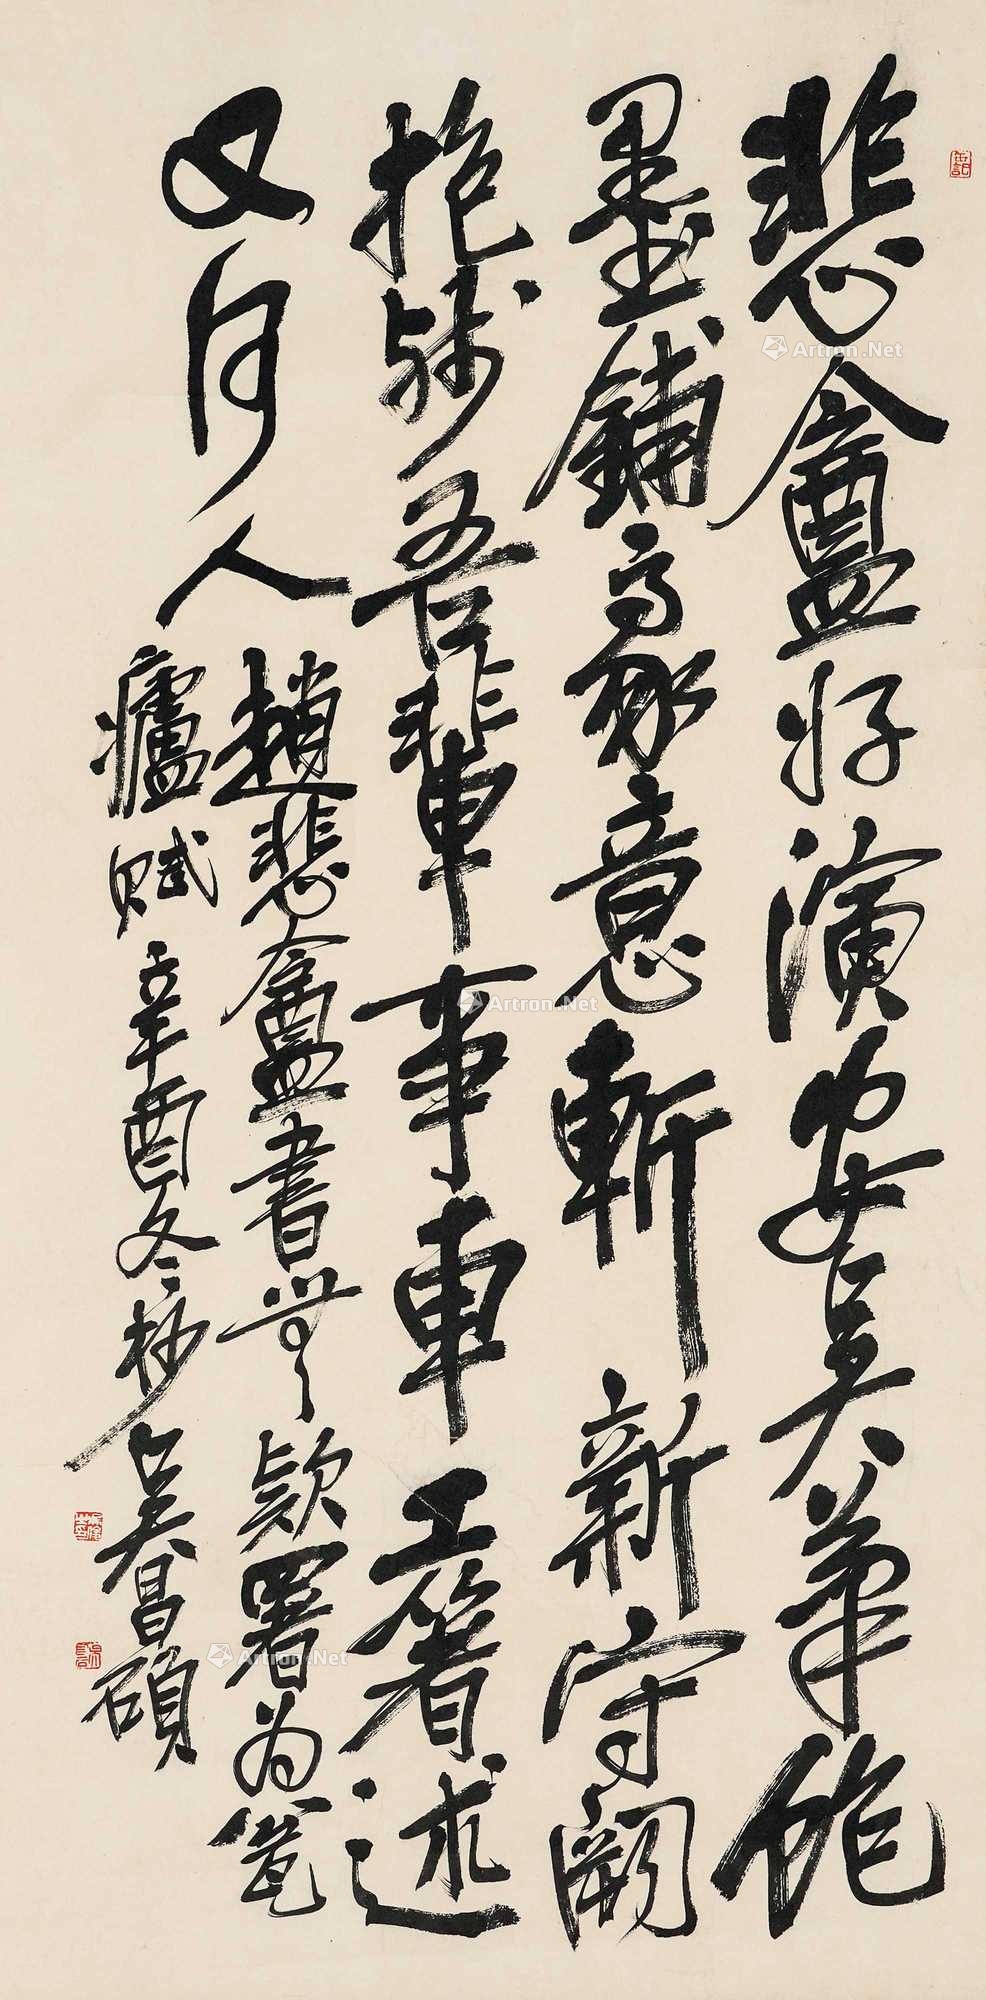 悲盦好演安吳筆飽
墨鋪豪意斬新守闕
抱殘吾輩事專工箸述
又何人
趙悲盦書無欵署為瓮
廬賦辛酉冬杪吳昌碩
Artron.Net
Artron.Net
Artron.Net